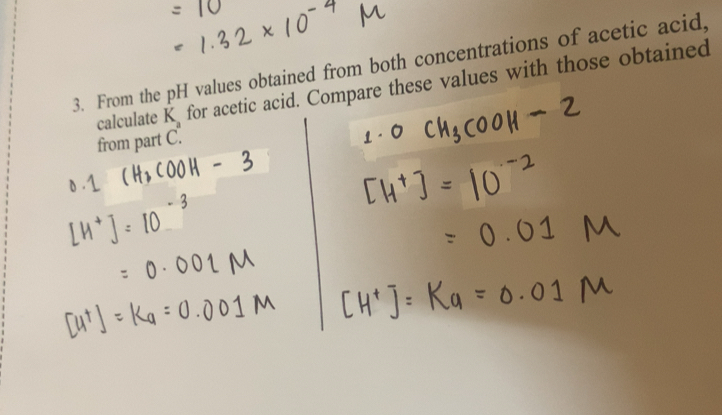 = 10
= 1.32 × 10⁻⁴ M
3. From the pH values obtained from both concentrations of acetic acid,
calculate Kₐ for acetic acid. Compare these values with those obtained
from part C.
0.1 CH₃COOH - 3
[H⁺] = 10⁻³
= 0.001 M
[H⁺] = Ka = 0.001 M
1.0 CH₃COOH - 2
[H⁺] = 10⁻²
= 0.01 M
[H⁺] = Ka = 0.01 M